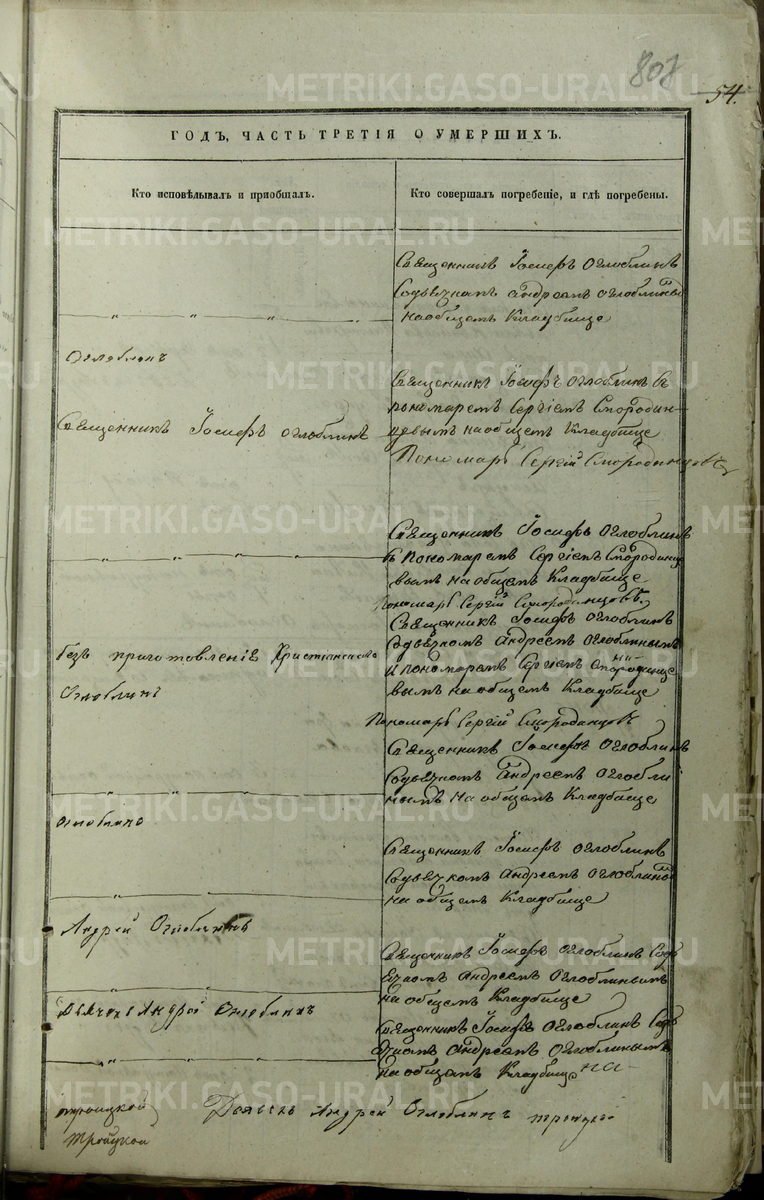 807
54.
ГОДЪ, ЧАСТЬ ТРЕТІЯ О УМЕРШИХЪ.
Кто исповѣдывалъ и приобщалъ.
Кто совершалъ погребеніе, и гдѣ погребены.
Священникъ Іосифъ Оглоблинъ
Содьячкомъ Андреемъ Оглоблинымъ
наобщемъ Кладбище
Оглоблинъ
Священникъ Іосифъ Оглоблинъ
Священникъ Іосифъ Оглоблинъ съ
пономаремъ Сергіемъ Смородин-
цовымъ наобщемъ Кладбище
Пономарь Сергій Смородинцовъ
Священникъ Іосифъ Оглоблинъ
съ Пономаремъ Сергіемъ Смородинцо
вымъ наобщемъ Кладбище
Пономарь Сергій Смородинцовъ.
безъ приготовленіе Христіанскаго
Оглоблинъ
Священникъ Іосифъ Оглоблинъ
Содьячкомъ Андреемъ Оглоблинымъ
и пономаремъ Сергіемъ Смородинцо
вымъ наобщемъ Кладбище
Пономарь Сергій Смородинцовъ
Священникъ Іосифъ Оглоблинъ
Содьячкомъ Андреемъ Оглобли
нымъ на общемъ Кладбище
Оглоблинъ
Священникъ Іосифъ Оглоблинъ
Содьячкомъ Андреемъ Оглоблинымъ
на общемъ Кладбище
Андрей Оглоблинъ
Священникъ Іосифъ Оглоблинъ Содь
ячкомъ Андреемъ Оглоблинымъ
на общемъ Кладбище
Дьячекъ Андрей Оглоблинъ
Священникъ Іосифъ Оглоблинъ Содь
ячкомъ Андреемъ Оглоблинымъ
на общемъ Кладбище на
троицкой Дьячекъ Андрей Оглоблинъ
Тройцкой
METRIKI.GASO-URAL.RU